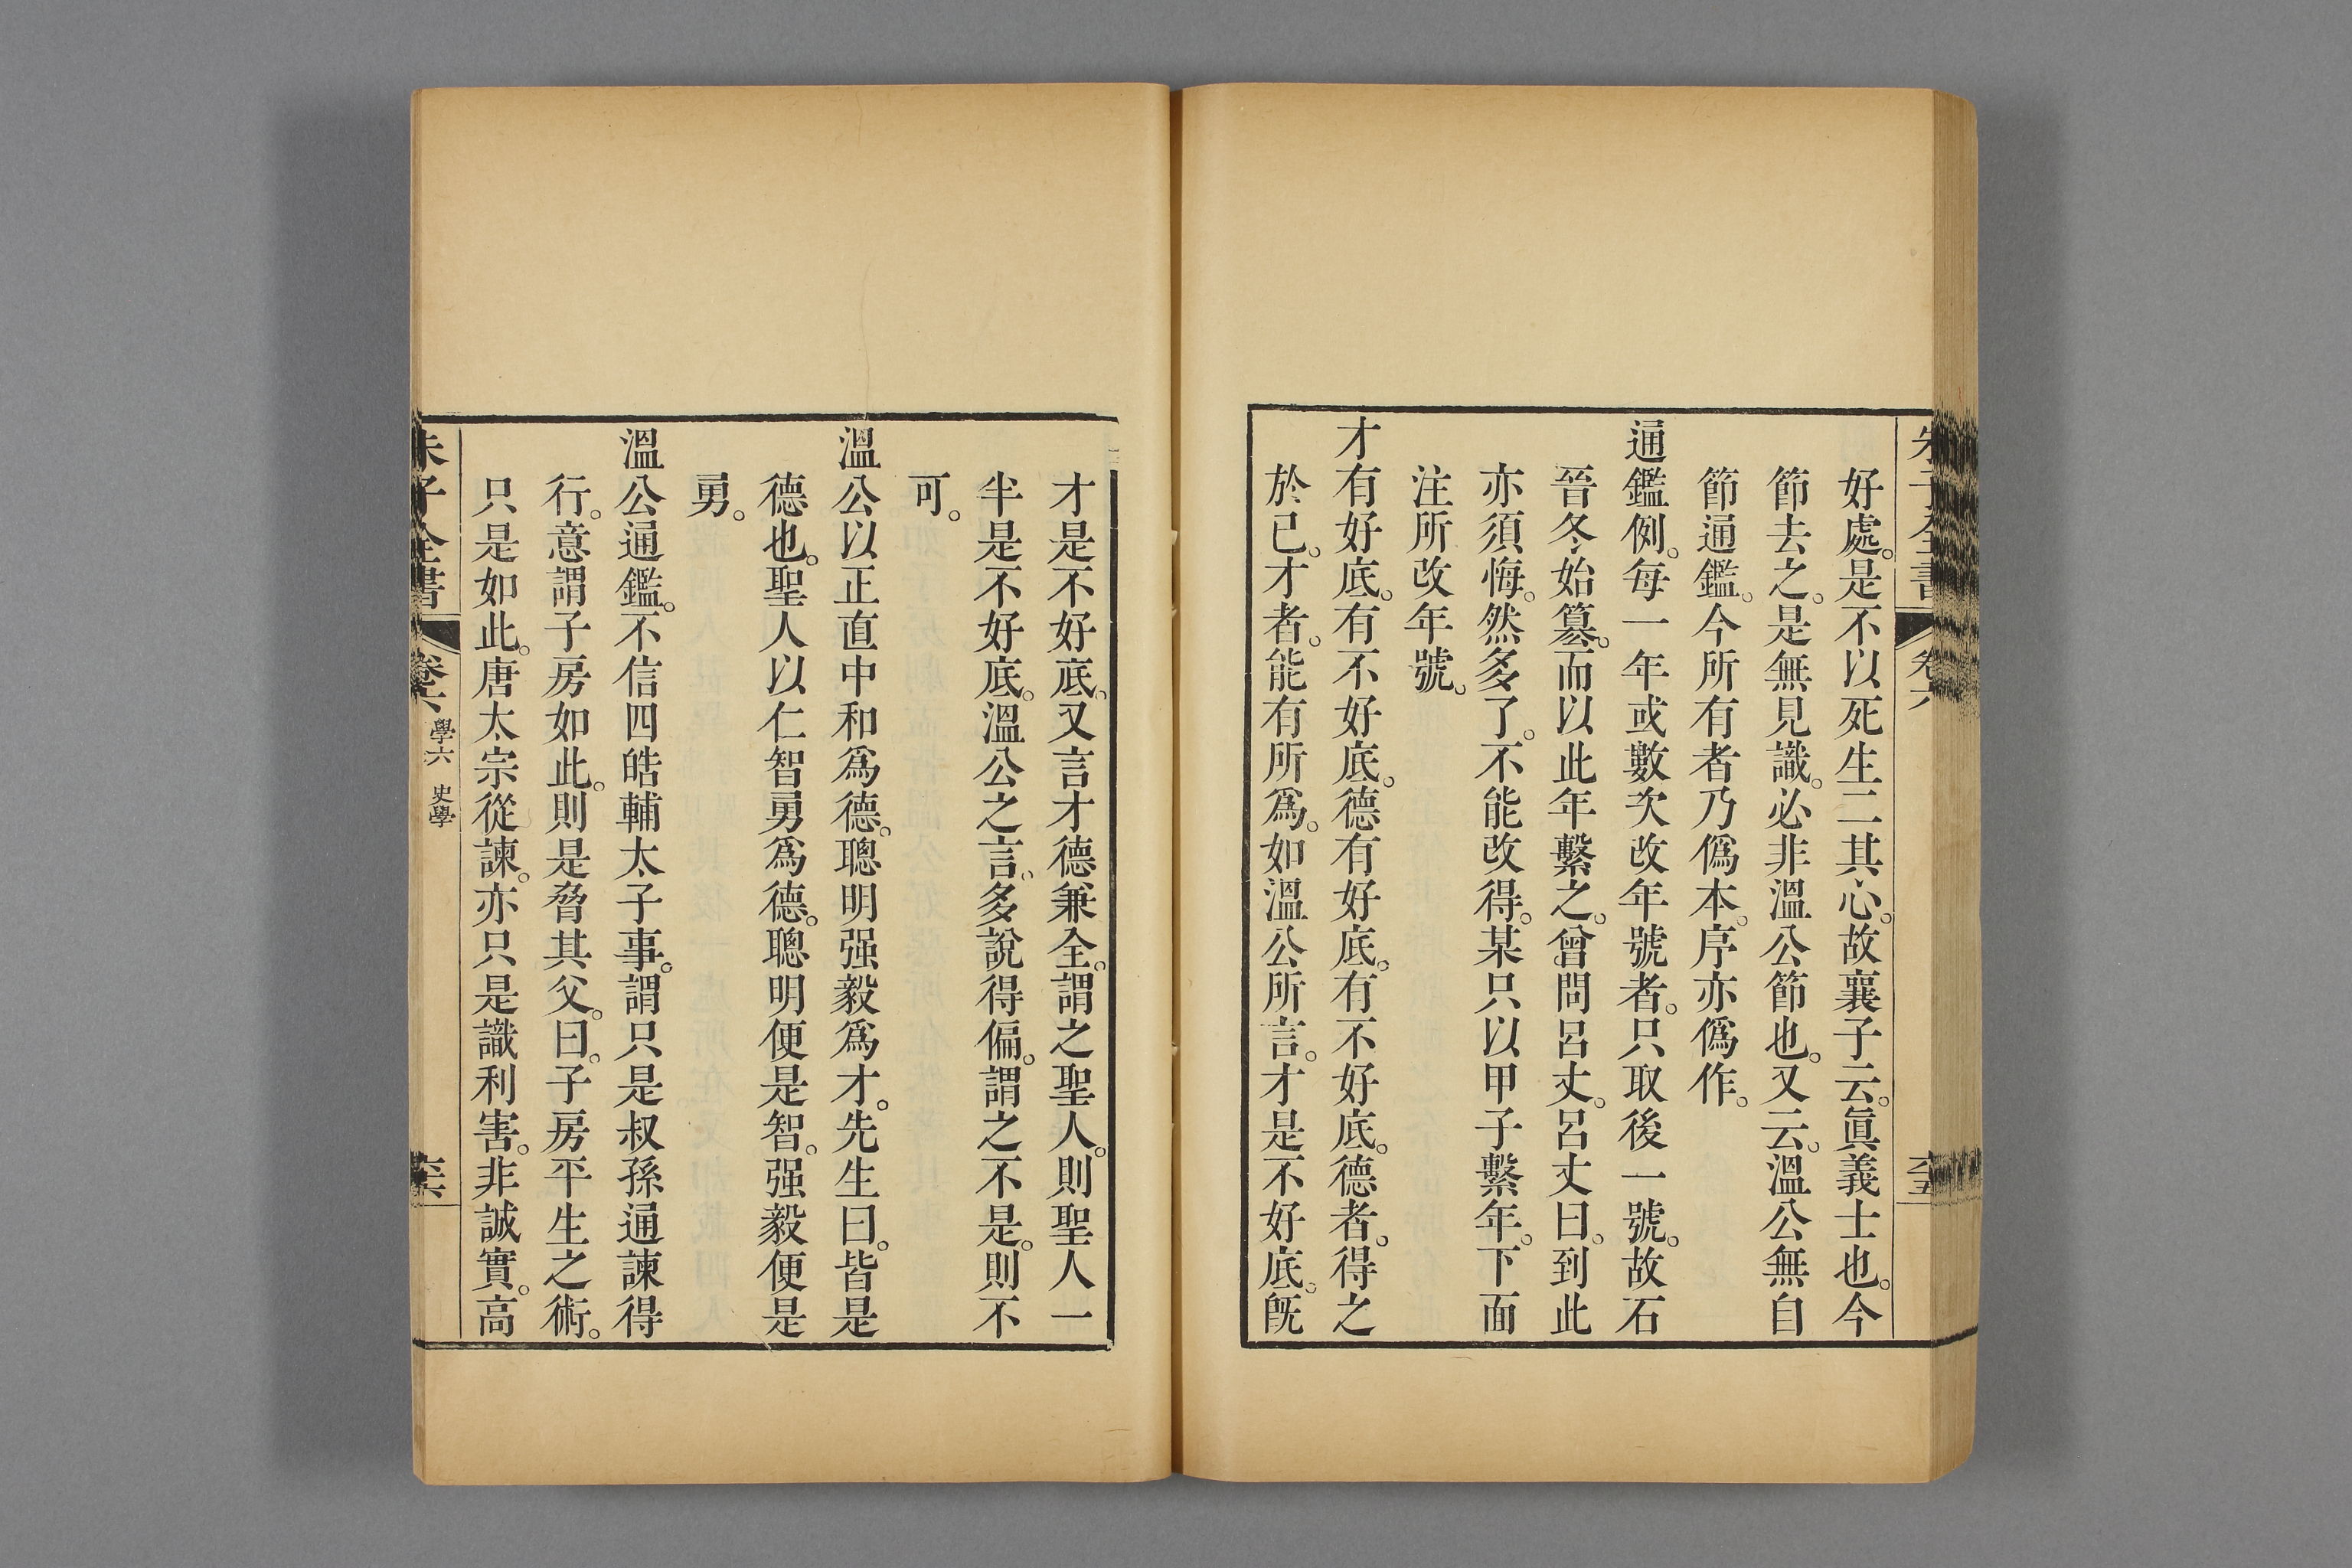 朱子全書 卷六 六十五
好處。是不以死生二其心。故襄子云。眞義士也。今
節去之。是無見識。必非溫公節也。又云。溫公無自
節通鑑。今所有者乃僞本。序亦僞作。
通鑑例。每一年或數次改年號者。只取後一號。故石
晉冬始篡。而以此年繫之。曾問呂丈。呂丈曰。到此
亦須悔。然多了。不能改得。某只以甲子繫年。下面
注所改年號。
才有好底。有不好底。德有好底。有不好底。德者。得之
於己。才者。能有所爲。如溫公所言。才是不好底。旣
才是不好底。又言才德兼全。謂之聖人。則聖人一
半是不好底。溫公之言。多說得偏。謂之不是。則不
可。
溫公以正直中和爲德。聰明强毅爲才。先生曰。皆是
德也。聖人以仁智勇爲德。聰明便是智。强毅便是
勇。
溫公通鑑。不信四皓輔太子事。謂只是叔孫通諫得
行。意謂子房如此。則是脅其父。曰。子房平生之術。
只是如此。唐太宗從諫。亦只是識利害。非誠實。高
朱子全書 卷六 學六 史學 六十六